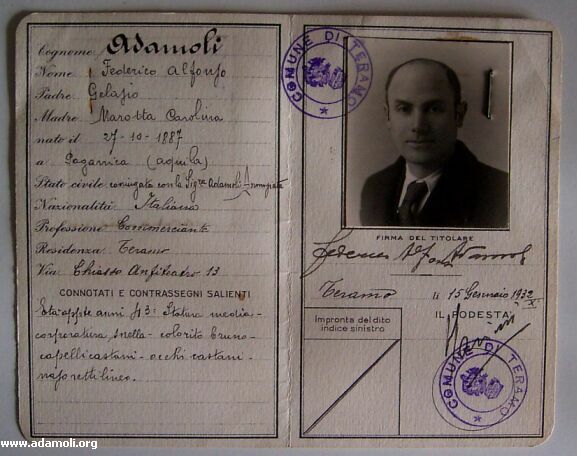 Cognome Adamoli
Nome Federico Alfonso
Padre Gelasio
Madre Marotta Carolina
nato il 27-10-1887
a Paganica (Aquila)
Stato civile coniugato con la Sig.ra Adamoli
Nazionalità Italiana
Professione Commerciante
Residenza Teramo
Via Chiasso Anfiteatro 13
CONNOTATI E CONTRASSEGNI SALIENTI
Età anni 43: Statura media-
corporatura snella- colorito bruno-
capelli castani- occhi castani-
naso rettilineo.
COMUNE DI TERAMO
FIRMA DEL TITOLARE
Federico Alfonso Adamoli
Teramo li 15 Gennaio 1932
X
IL PODESTÀ
Impronta del dito
indice sinistro
COMUNE DI TERAMO
www.adamoli.org